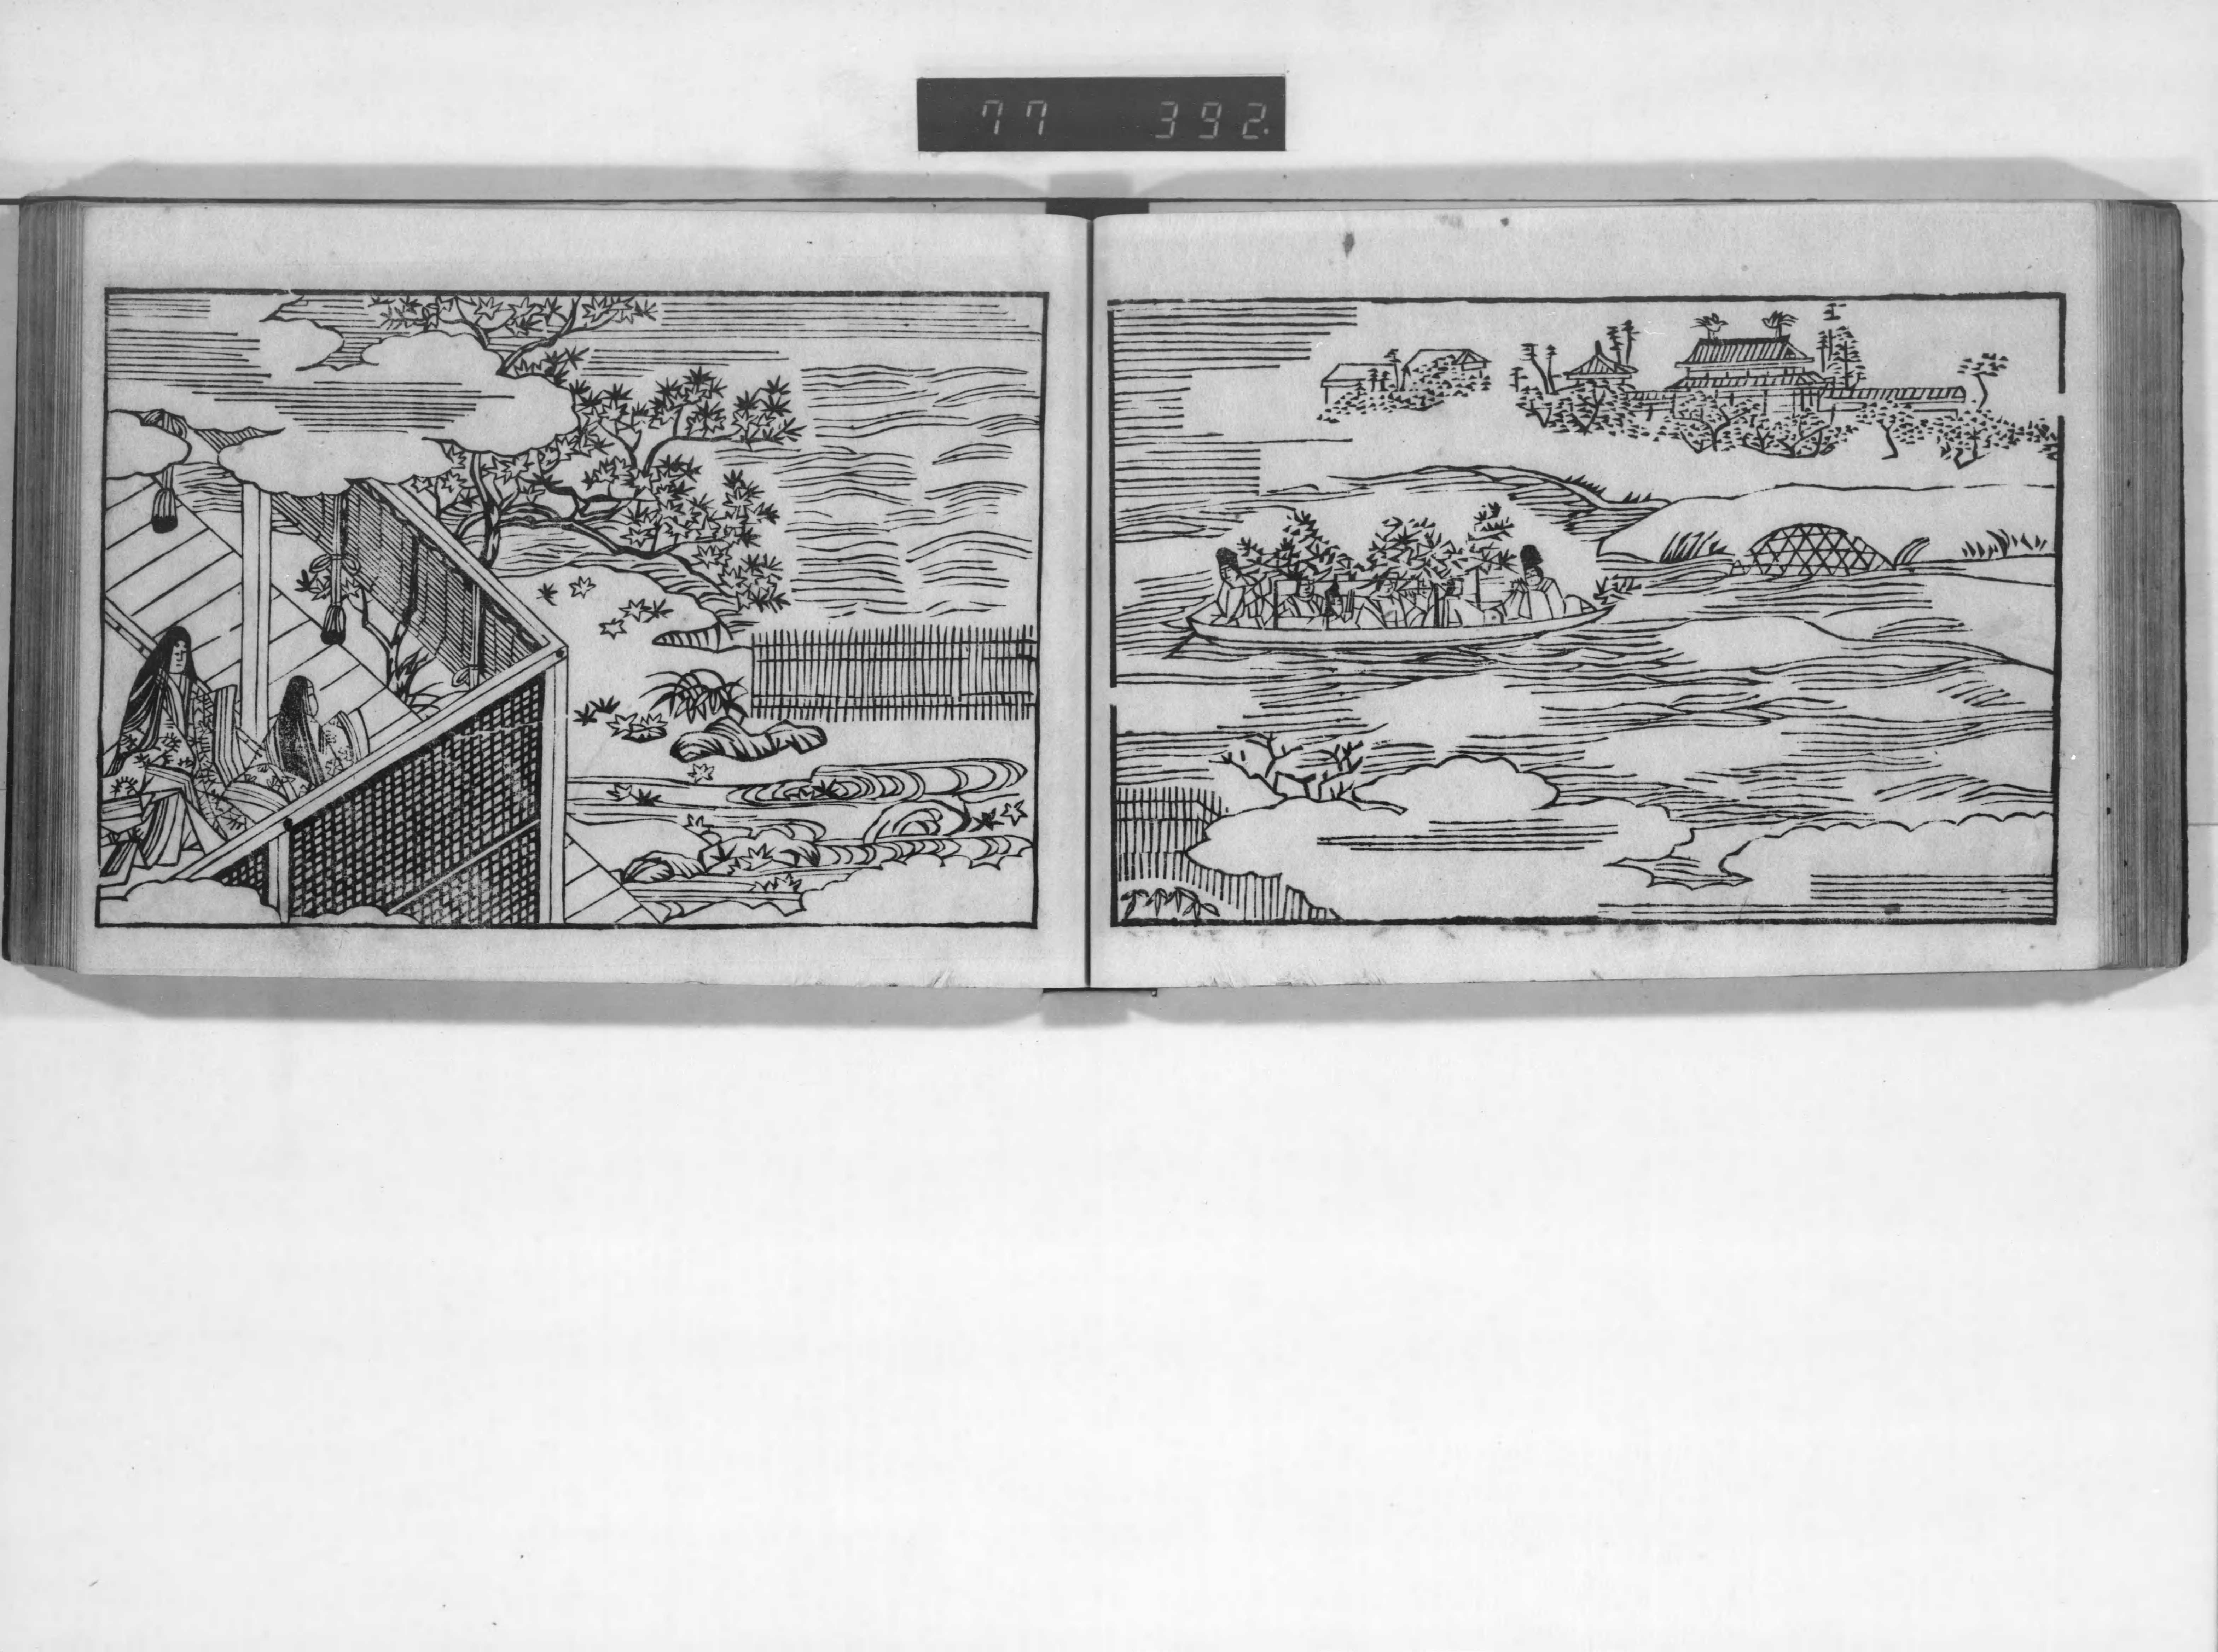 77 392.